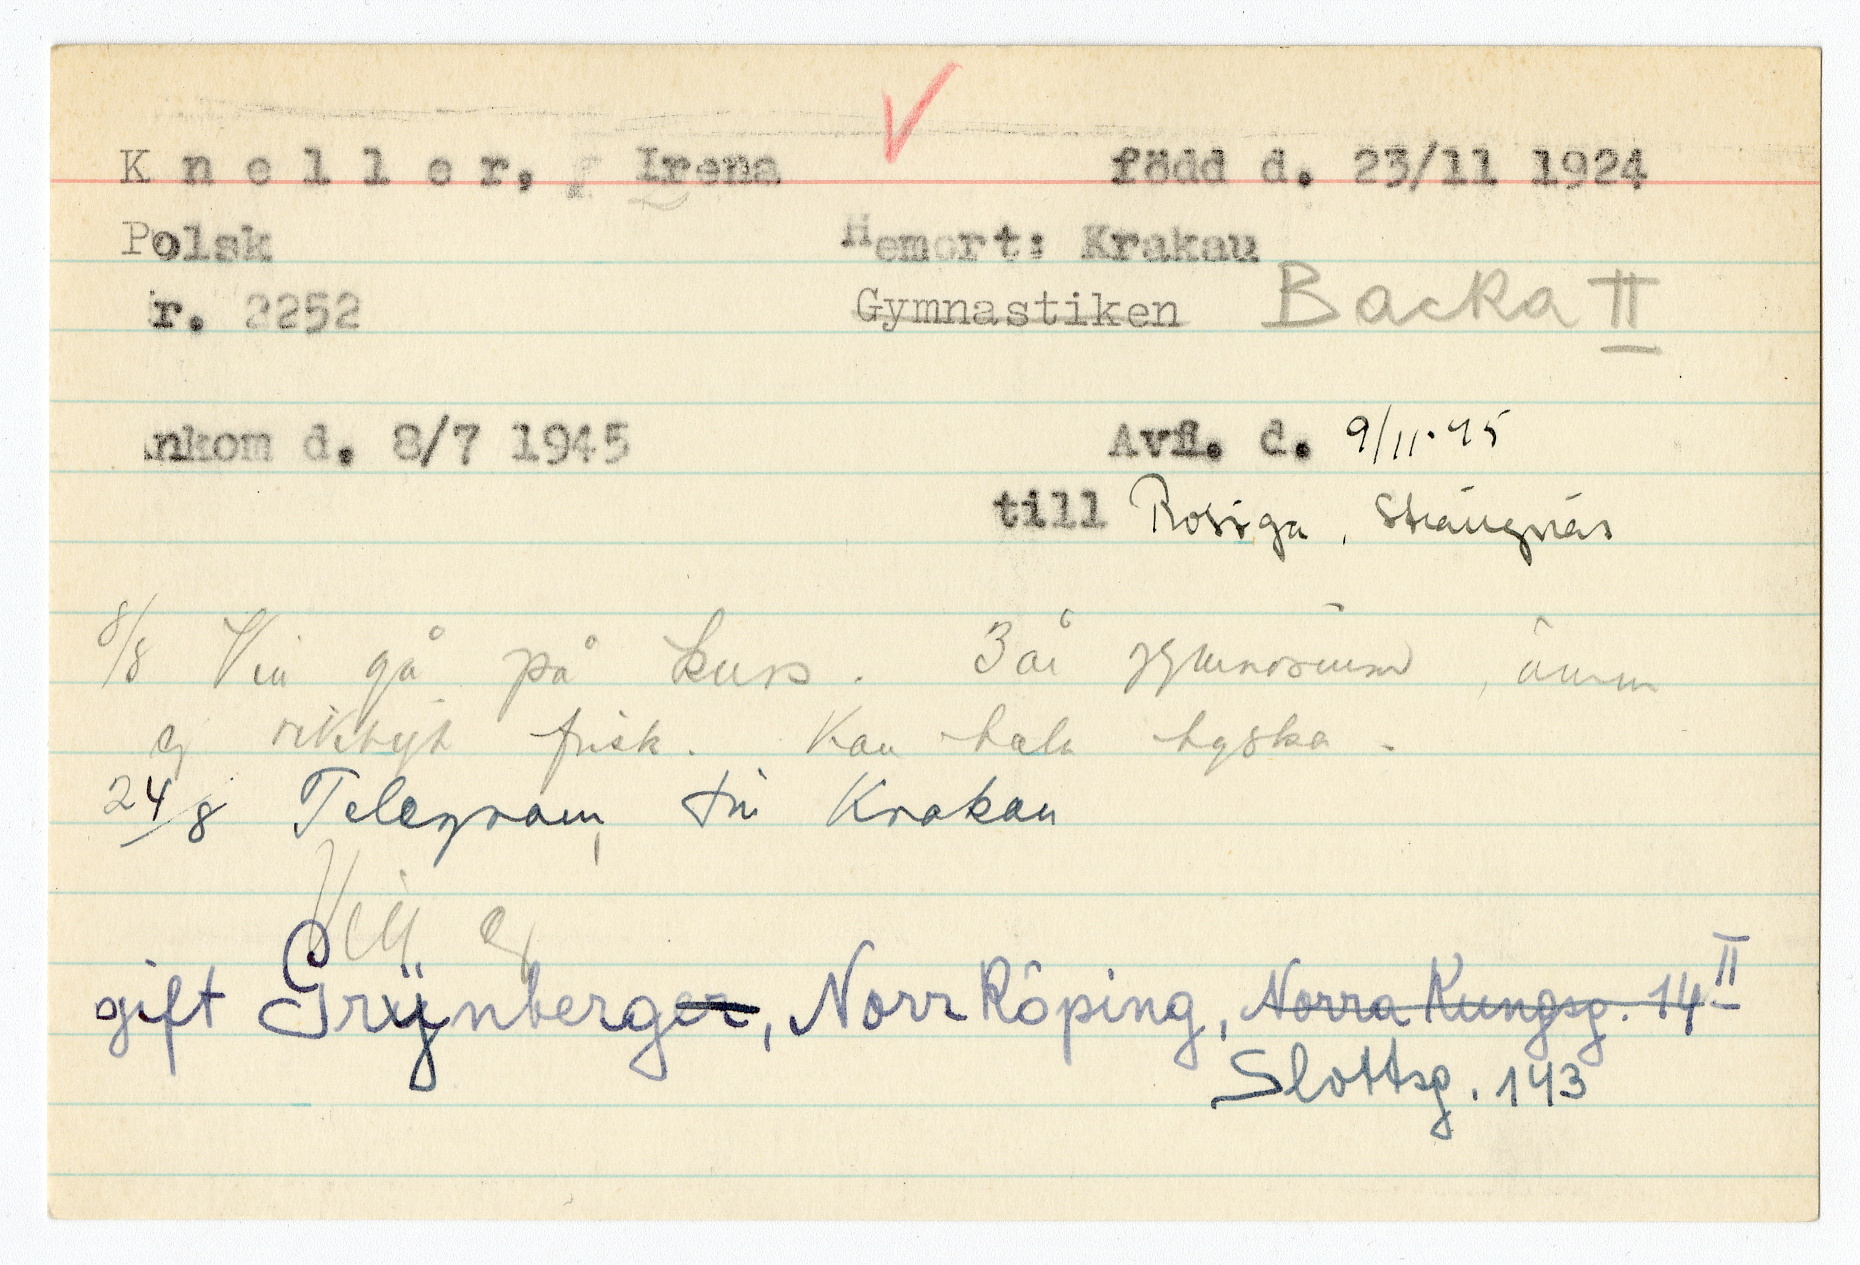 K n e l l e r, Irena född d. 23/11 1924
Polsk Hemort: Krakau
r. 2252 Gymnastiken Backa II
nkom d. 8/7 1945 Avfl. d. 9/11.45
till Rosöga, Strängnäs
8/8 Vill gå på kurs. 3 år gymnasium, ännu
ej riktigt frisk. Kan tala tyska.
24/8 Telegram till Krakau
Vill ej
gift Grynberger, Norrköping, Norra Kungsg. 14 II
Slottsg. 143